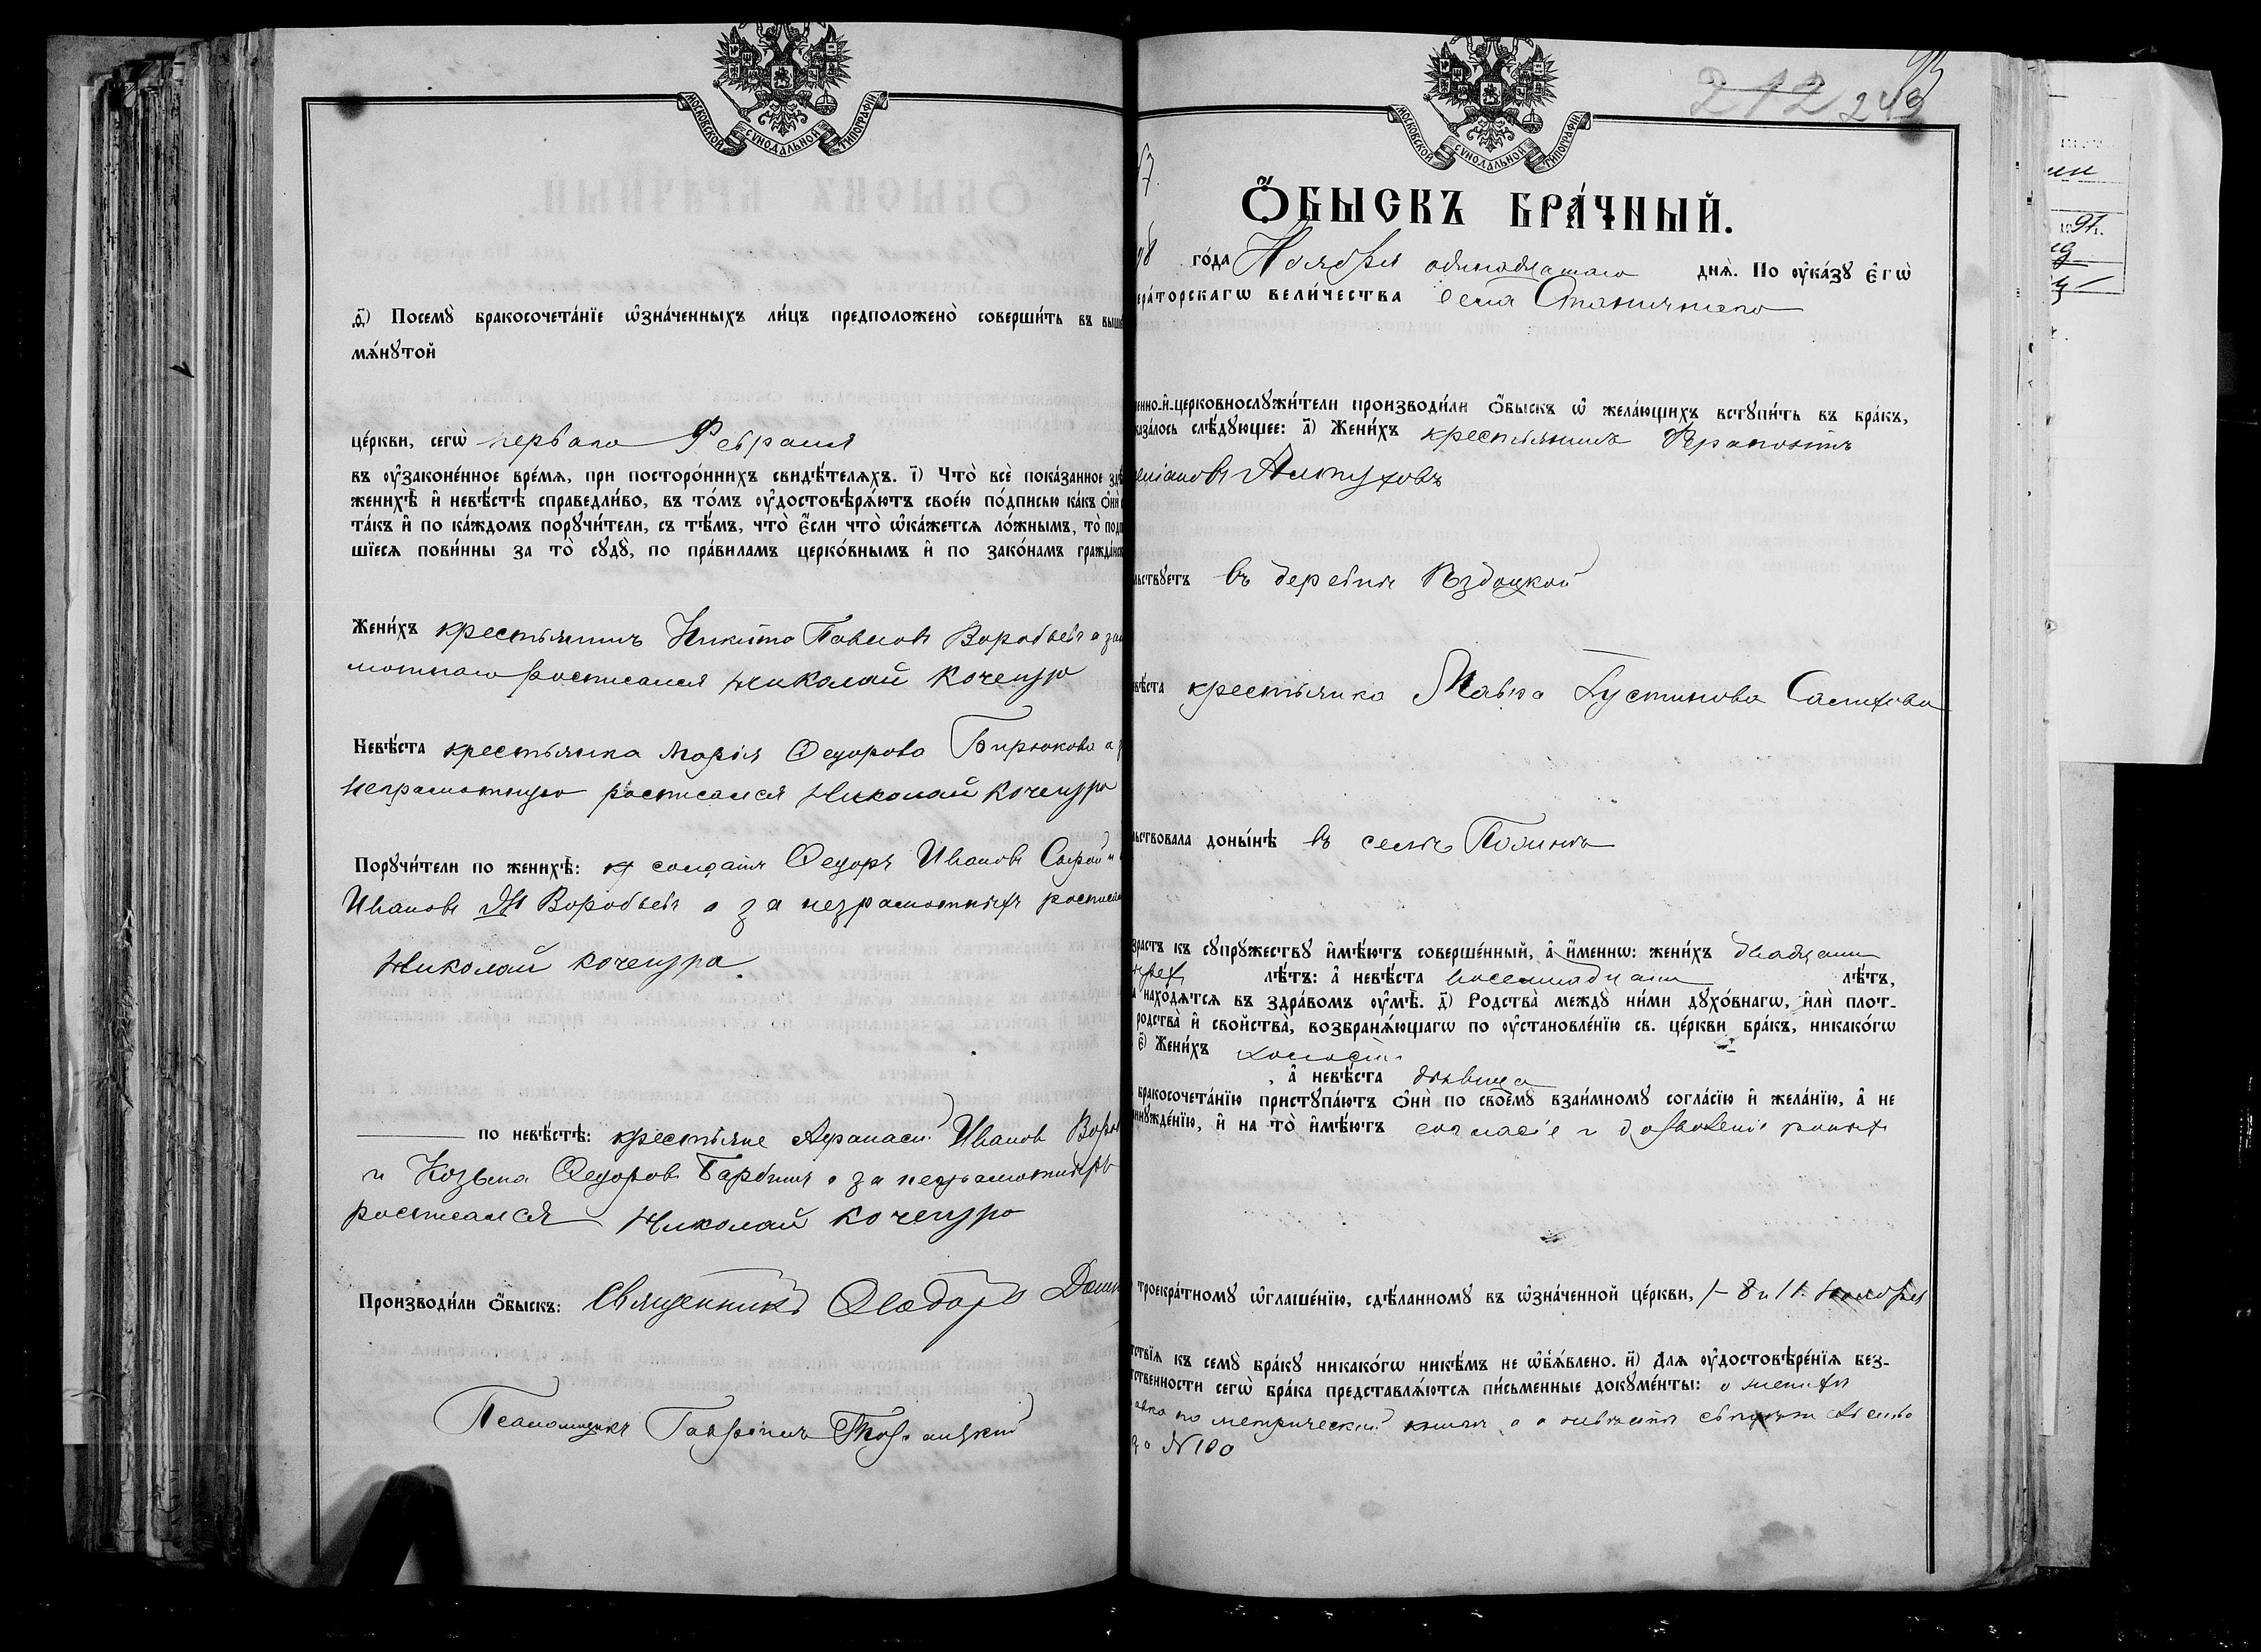 МОСКОВСКОЙ СУНОДАЛЬНОЙ ТИПОГРАФІИ
ѳ҃) Посемꙋ̀ бракосочета́нїе ѡ҆зна́ченныхъ ли́цъ предположено̀ соверши́ть въ выше
мѧ́нꙋтой
це́ркви, сегѡ̀ перваго Февраля
въ ᲂу҆законе́нное вре́мѧ, при посторо́ннихъ свидѣ́телѧхъ. і҃) Что̀ всѐ пока́занное здѣ
женихѣ̀ и҆ невѣ́стѣ справедли́во, въ то́мъ ᲂу҆достовѣрѧ́ютъ свое́ю по́дписью ка́къ ѻ҆нѝ
та́къ и҆ по ка́ждомъ порꙋчи́тели, съ тѣ́мъ, что̀ є҆́сли что̀ ѡ҆ка́жетсѧ ло́жнымъ, то̀ подп
шїесѧ пови́нны за то̀ сꙋдꙋ̀, по пра́виламъ церко́внымъ и҆ по зако́намъ гражда́нск
Жени́хъ крестьянинъ Никита Павловъ Воробьевъ а за
мотнаго росписался Николай Кочергура
Невѣ́ста крестьянка Марія Ѳедорова Бирюкова а
неграмотную росписался Николай Кочергура
Порꙋчи́тели по женихѣ̀: солдатъ Ѳедоръ Ивановъ Сырой и
Ивановъ Воробьевъ а за неграмотныхъ росписал
Николай Кочергура.
по невѣ́стѣ: крестьяне Аѳанасій Ивановъ Вороб
и Козьма Ѳедоровъ Барбинъ а за неграмотныхъ
росписался Николай Кочергура
Производи́ли ѻ҆́быскъ: Священникъ Ѳеодоръ
Псаломщикъ Гавріилъ
МОСКОВСКОЙ СУНОДАЛЬНОЙ ТИПОГРАФІИ
212 243
Ѻ҆́БЫСКЪ БРА́ЧНЫЙ.
го́да Ноября одинадцатаго днѧ̀. По ᲂу҆ка́зꙋ є҆гѡ̀
ера́торскагѡ вели́чества села Станичнаго
енно-и҆-церковнослꙋжи́тели производи́ли ѻ҆́быскъ ѡ҆ жела́ющихъ встꙋпи́ть въ бра́къ,
каза́лось слѣ́дꙋющее: а҃) Жени́хъ крестьянинъ Ферапонтъ
еліановъ Алтуховъ
льствꙋетъ въ деревнѣ Яздоцкой
вѣ́ста крестьянка Мавра Густинова Салихова
льствовала доны́нѣ въ селѣ
зрастъ къ сꙋпрꙋ́жествꙋ и҆мѣ́ютъ соверше́нный, а҆ и҆́меннѡ: жени́хъ двадцати
трех лѣ́тъ: а҆ невѣ́ста восемнадцати лѣ́тъ,
находѧ́тсѧ въ здра́вомъ ᲂу҆мѣ̀. д҃) Родства̀ междꙋ̀ ни́ми дꙋхо́внагѡ, и҆лѝ плот-
родства̀ и҆ свойства̀, возбранѧ́ющагѡ по ᲂу҆становле́нїю св. це́ркви бра́къ, никако́гѡ
є҃) Жени́хъ холостъ
, а҆ невѣ́ста дѣвица
бракосочета́нїю пристꙋпа́ютъ ѻ҆нѝ по своемꙋ̀ взаи́мномꙋ согла́сїю и҆ жела́нїю, а҆ не
инꙋжде́нїю, и҆ на то̀ и҆мѣ́ютъ согласіе и дозволеніе
троекра́тномꙋ ѡ҆глаше́нїю, сдѣ́ланномꙋ въ ѡ҆зна́ченной це́ркви, 1- 8 и 11 Ноября
тствїѧ къ семꙋ̀ бра́кꙋ никако́гѡ никѣ́мъ не ѡ҆б̾ѧ́влено. и҃) Длѧ ᲂу҆достовѣре́нїѧ без-
тственности сегѡ̀ бра́ка представлѧ́ютсѧ пи́сьменные докꙋме́нты: о женихѣ
по метрической книгѣ, а о невѣстѣ
за №100